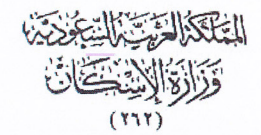 المملكة العربية السعودية
وزارة الإسكان
(٢٦٢)